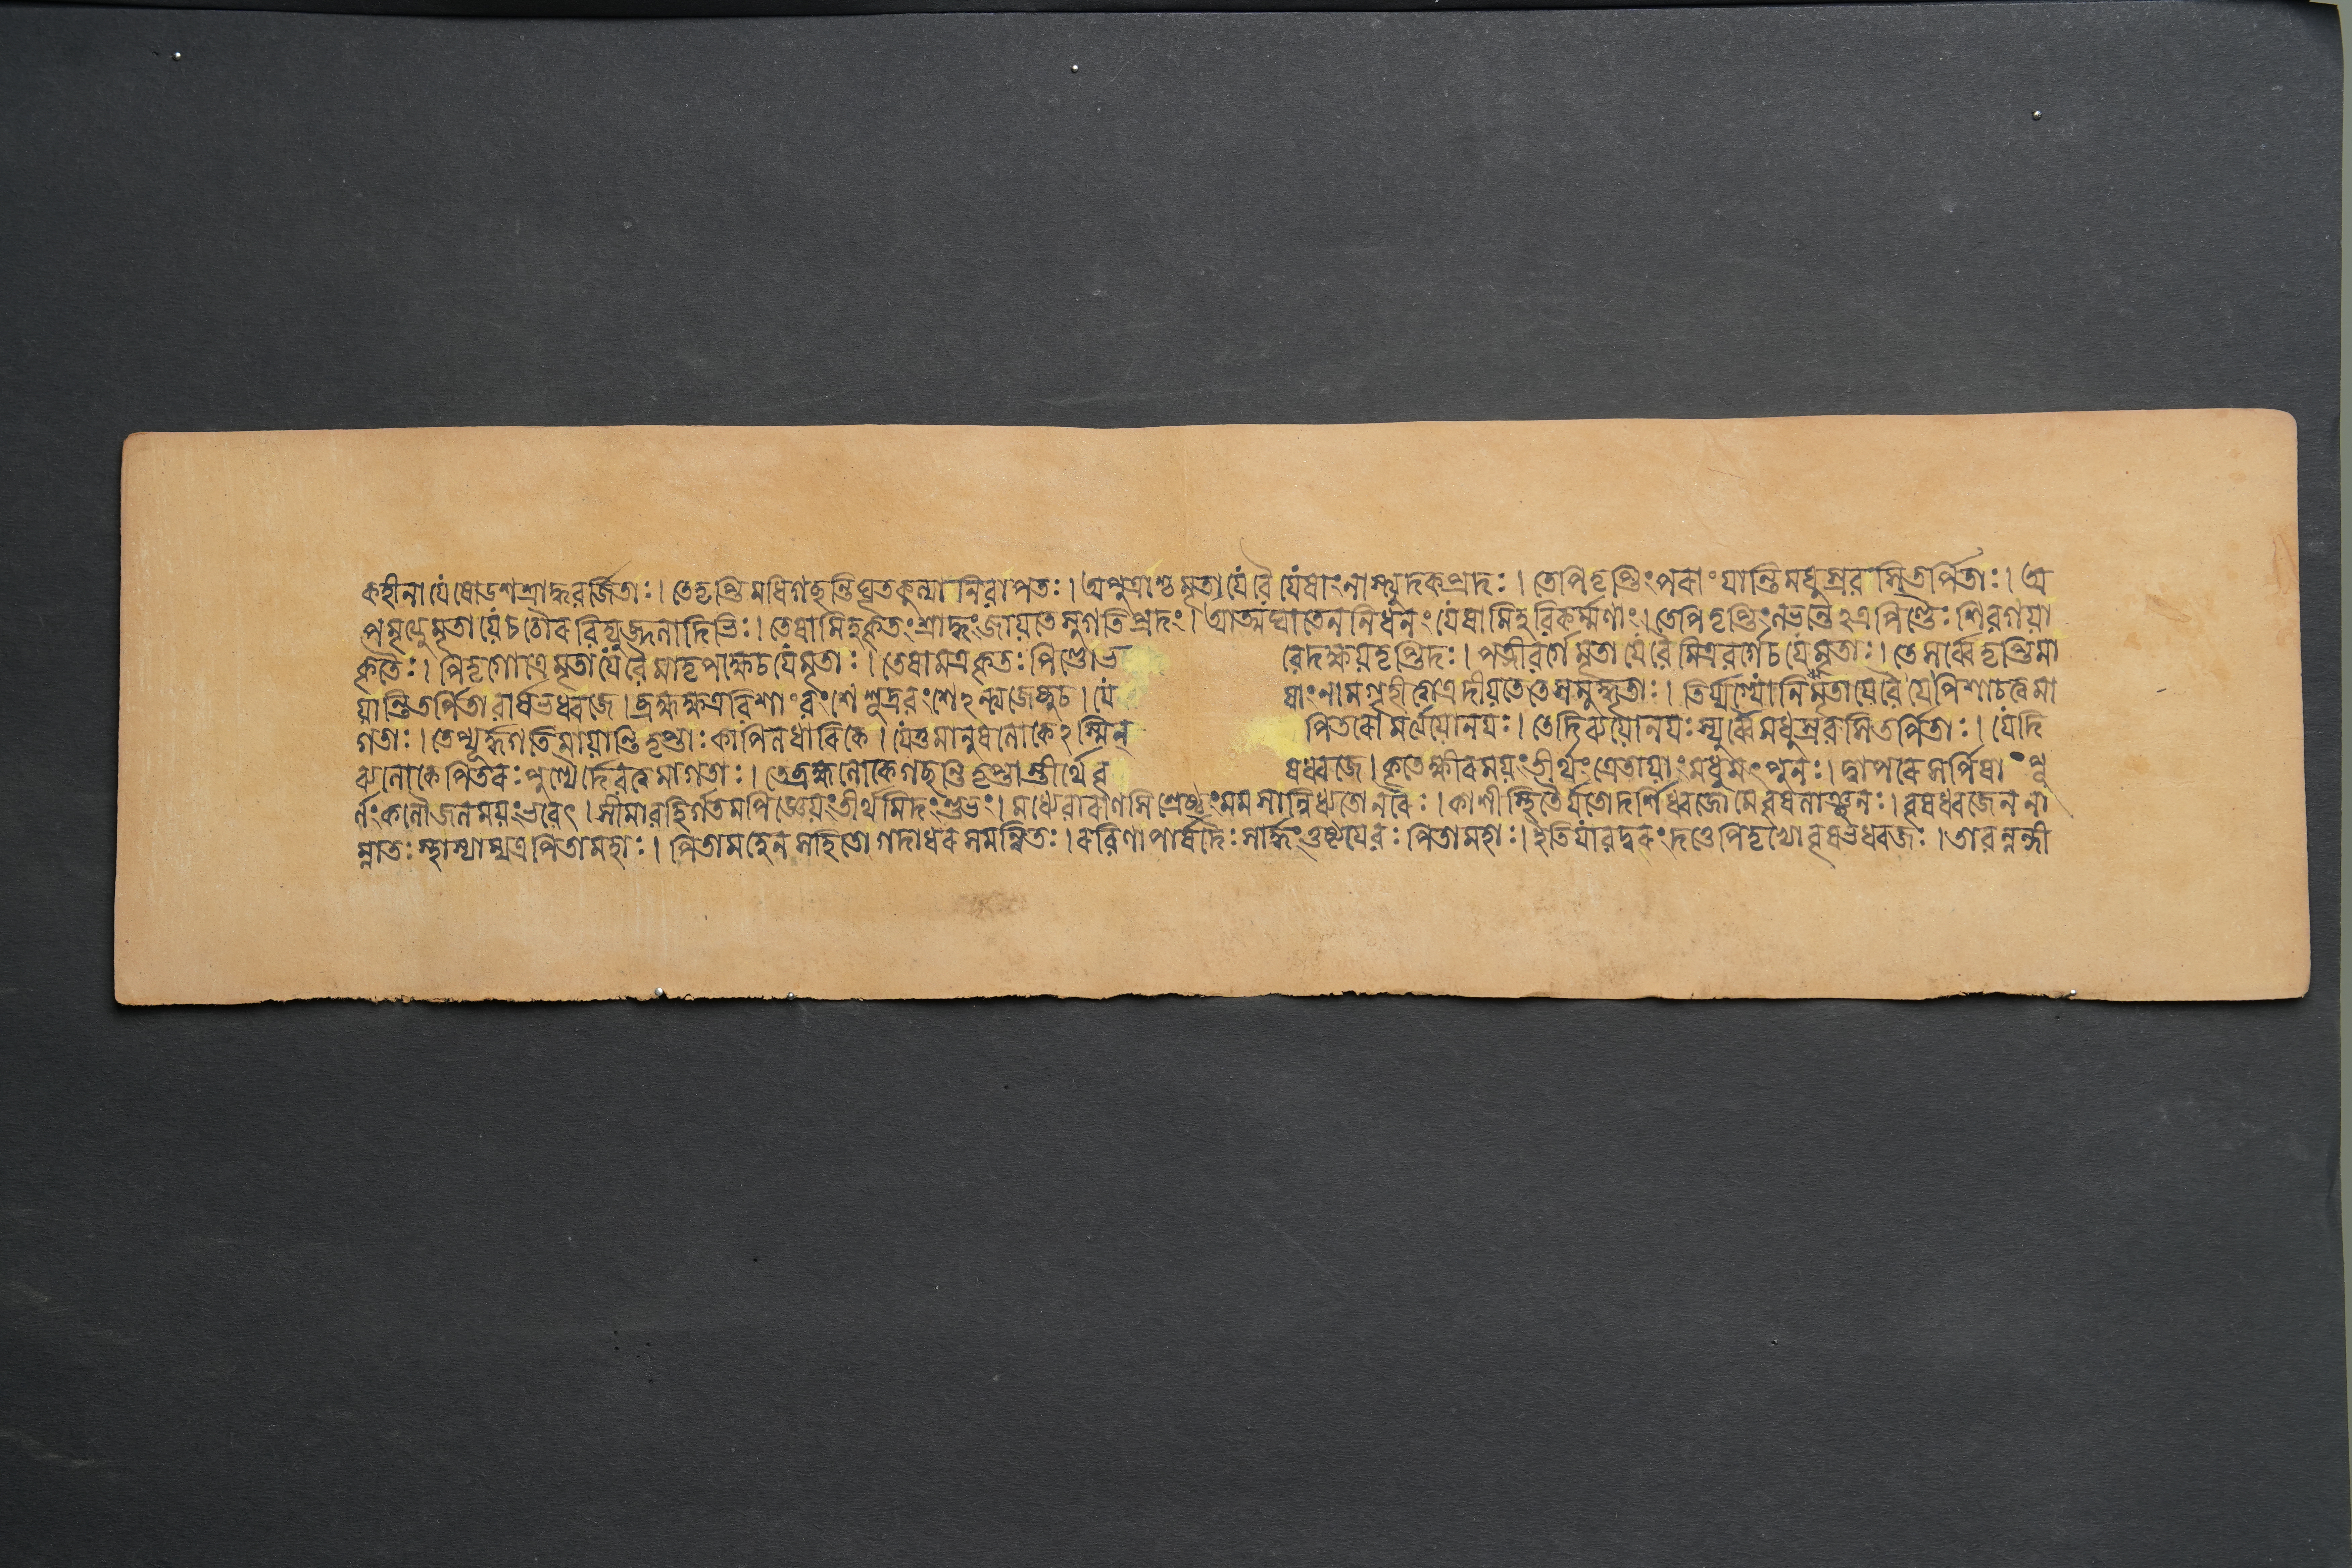 কহীনা যে ষোডশশ্রাদ্ধবর্জিতাঃ। তে তৃপ্তিমধিগছন্তি ঘৃতকুল্যা নিরাপতঃ। অপুত্রাশ্চ মৃতা যে বৈ যেষাং নাস্ত্যুদকপ্রদঃ। তেপি তৃপ্তিং পরাং যান্তি মধুস্রবাসি তর্পিতাঃ। অ
পমৃত্যুমৃতা যে চ চৌরৈর্বিদ্যুজ্জলাদিভিঃ। তেষামিহ কৃতং শ্রাদ্ধং জায়তে সুগতিপ্রদং। আত্মঘাতেন নিধনং যেষামিহ বিকর্ম্মণাং। তেপি তৃপ্তিং লভন্তেঽত্র পিণ্ডৈঃ শিবগয়া
কৃতৈঃ। পিতৃগোত্রে মৃতা যে বৈ মাতৃপক্ষে চ যে মৃতাঃ। তেষামত্র কৃতঃ পিণ্ডো ভ বেদক্ষয়তৃপ্তিদঃ। পত্নীবর্গে মৃতা যে বৈ মিত্রবর্গে চ যে মৃতাঃ। তে সর্ব্বে তৃপ্তিমা
য়ান্তি তর্পিতা বার্ষভধ্বজে। ব্রহ্মক্ষত্রবিশাং বংশে শূদ্রবংশেঽন্ত্যজেষু চ। যে ষাং নাম গৃহীত্বাত্র দীয়তে তে সমুদ্ধৃতাঃ। তির্য্যগ্যোনিমৃতা যে বৈ যে পিশাচত্বমা
গতাঃ। তেপ্যূর্দ্ধগতিমায়ান্তি তৃপ্তাঃ কাপিলধারিকে। যে তু মানুষলোকেঽস্মিন্ পিতরো মর্ত্যযোনয়ঃ। তে দিব্যযোনয়ঃ স্যুর্ব্বৈ মধুস্রবসি তর্পিতাঃ। যে দি
ব্যলোকে পিতরঃ পুণ্যৈর্দেবত্বমাগতাঃ। তে ব্রহ্মলোকে গছন্তি তৃপ্তাস্তীর্থে বৃ ষধ্বজে। কৃতে ক্ষীরময়ং তীর্থং ত্রেতায়াং মধুমৎ পুনঃ। দ্বাপরে সর্পিষা পূ
র্ণং কলৌ জলময়ং ভবেৎ। সীমাবহির্গতমপি জ্ঞেয়ং তীর্থমিদং শুভং। মধ্যে বারাণসি শ্রেষ্ঠং মম সান্নিধ্যতো নরৈঃ। কাশীস্থিতৈর্যতো দর্শি ধ্বজো মে বৃষলাঞ্ছনঃ। বৃষধ্বজেন না
ম্নাতঃ স্থাস্যাম্যত্র পিতামহাঃ। পিতামহেন সহিতো গদাধরসমন্বিতঃ। রবিণা পার্ষদৈঃ সার্দ্ধং তুষ্টয়ে বঃ পিতামহাঃ। ইতি যাবদ্বরং দত্তে পিতৃভ্যো বৃষভধ্বজঃ। তাবন্নন্দী